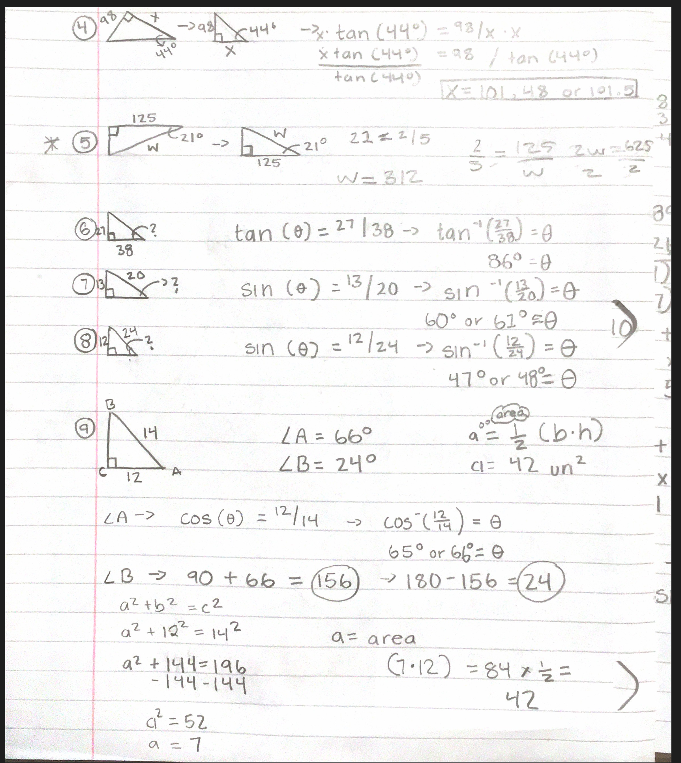 ④ 98 x 44° → 98 44° x → x · tan(44°) = 98/x · x
x tan(44°) = 98 / tan(44°)
tan(44°)
x = 101.48 or 101.5
* ⑤ 125 21° w → w 21° 125 21 ≤ 2/5 2/5 = 125/w 2w/2 = 625/2
w = 312
⑥ 27 38 ? tan(θ) = 27/38 → tan⁻¹(27/38) = θ
86° = θ
⑦ 13 20 → ? sin(θ) = 13/20 → sin⁻¹(13/20) = θ
60° or 61° = θ
10
⑧ 12 24 ? sin(θ) = 12/24 → sin⁻¹(12/24) = θ
47° or 48° = θ
⑨ B 14 C 12 A
∠A = 66°
∠B = 24°
area
a = 1/2 (b·h)
a = 42 un²
∠A → cos(θ) = 12/14 → cos⁻(12/14) = θ
65° or 66° = θ
∠B → 90 + 66 = 156 → 180 - 156 = 24
a² + b² = c²
a² + 12² = 14²
a² + 144 = 196
-144 -144
a² = 52
a = 7
a = area
(7·12) = 84 × 1/2 =
42